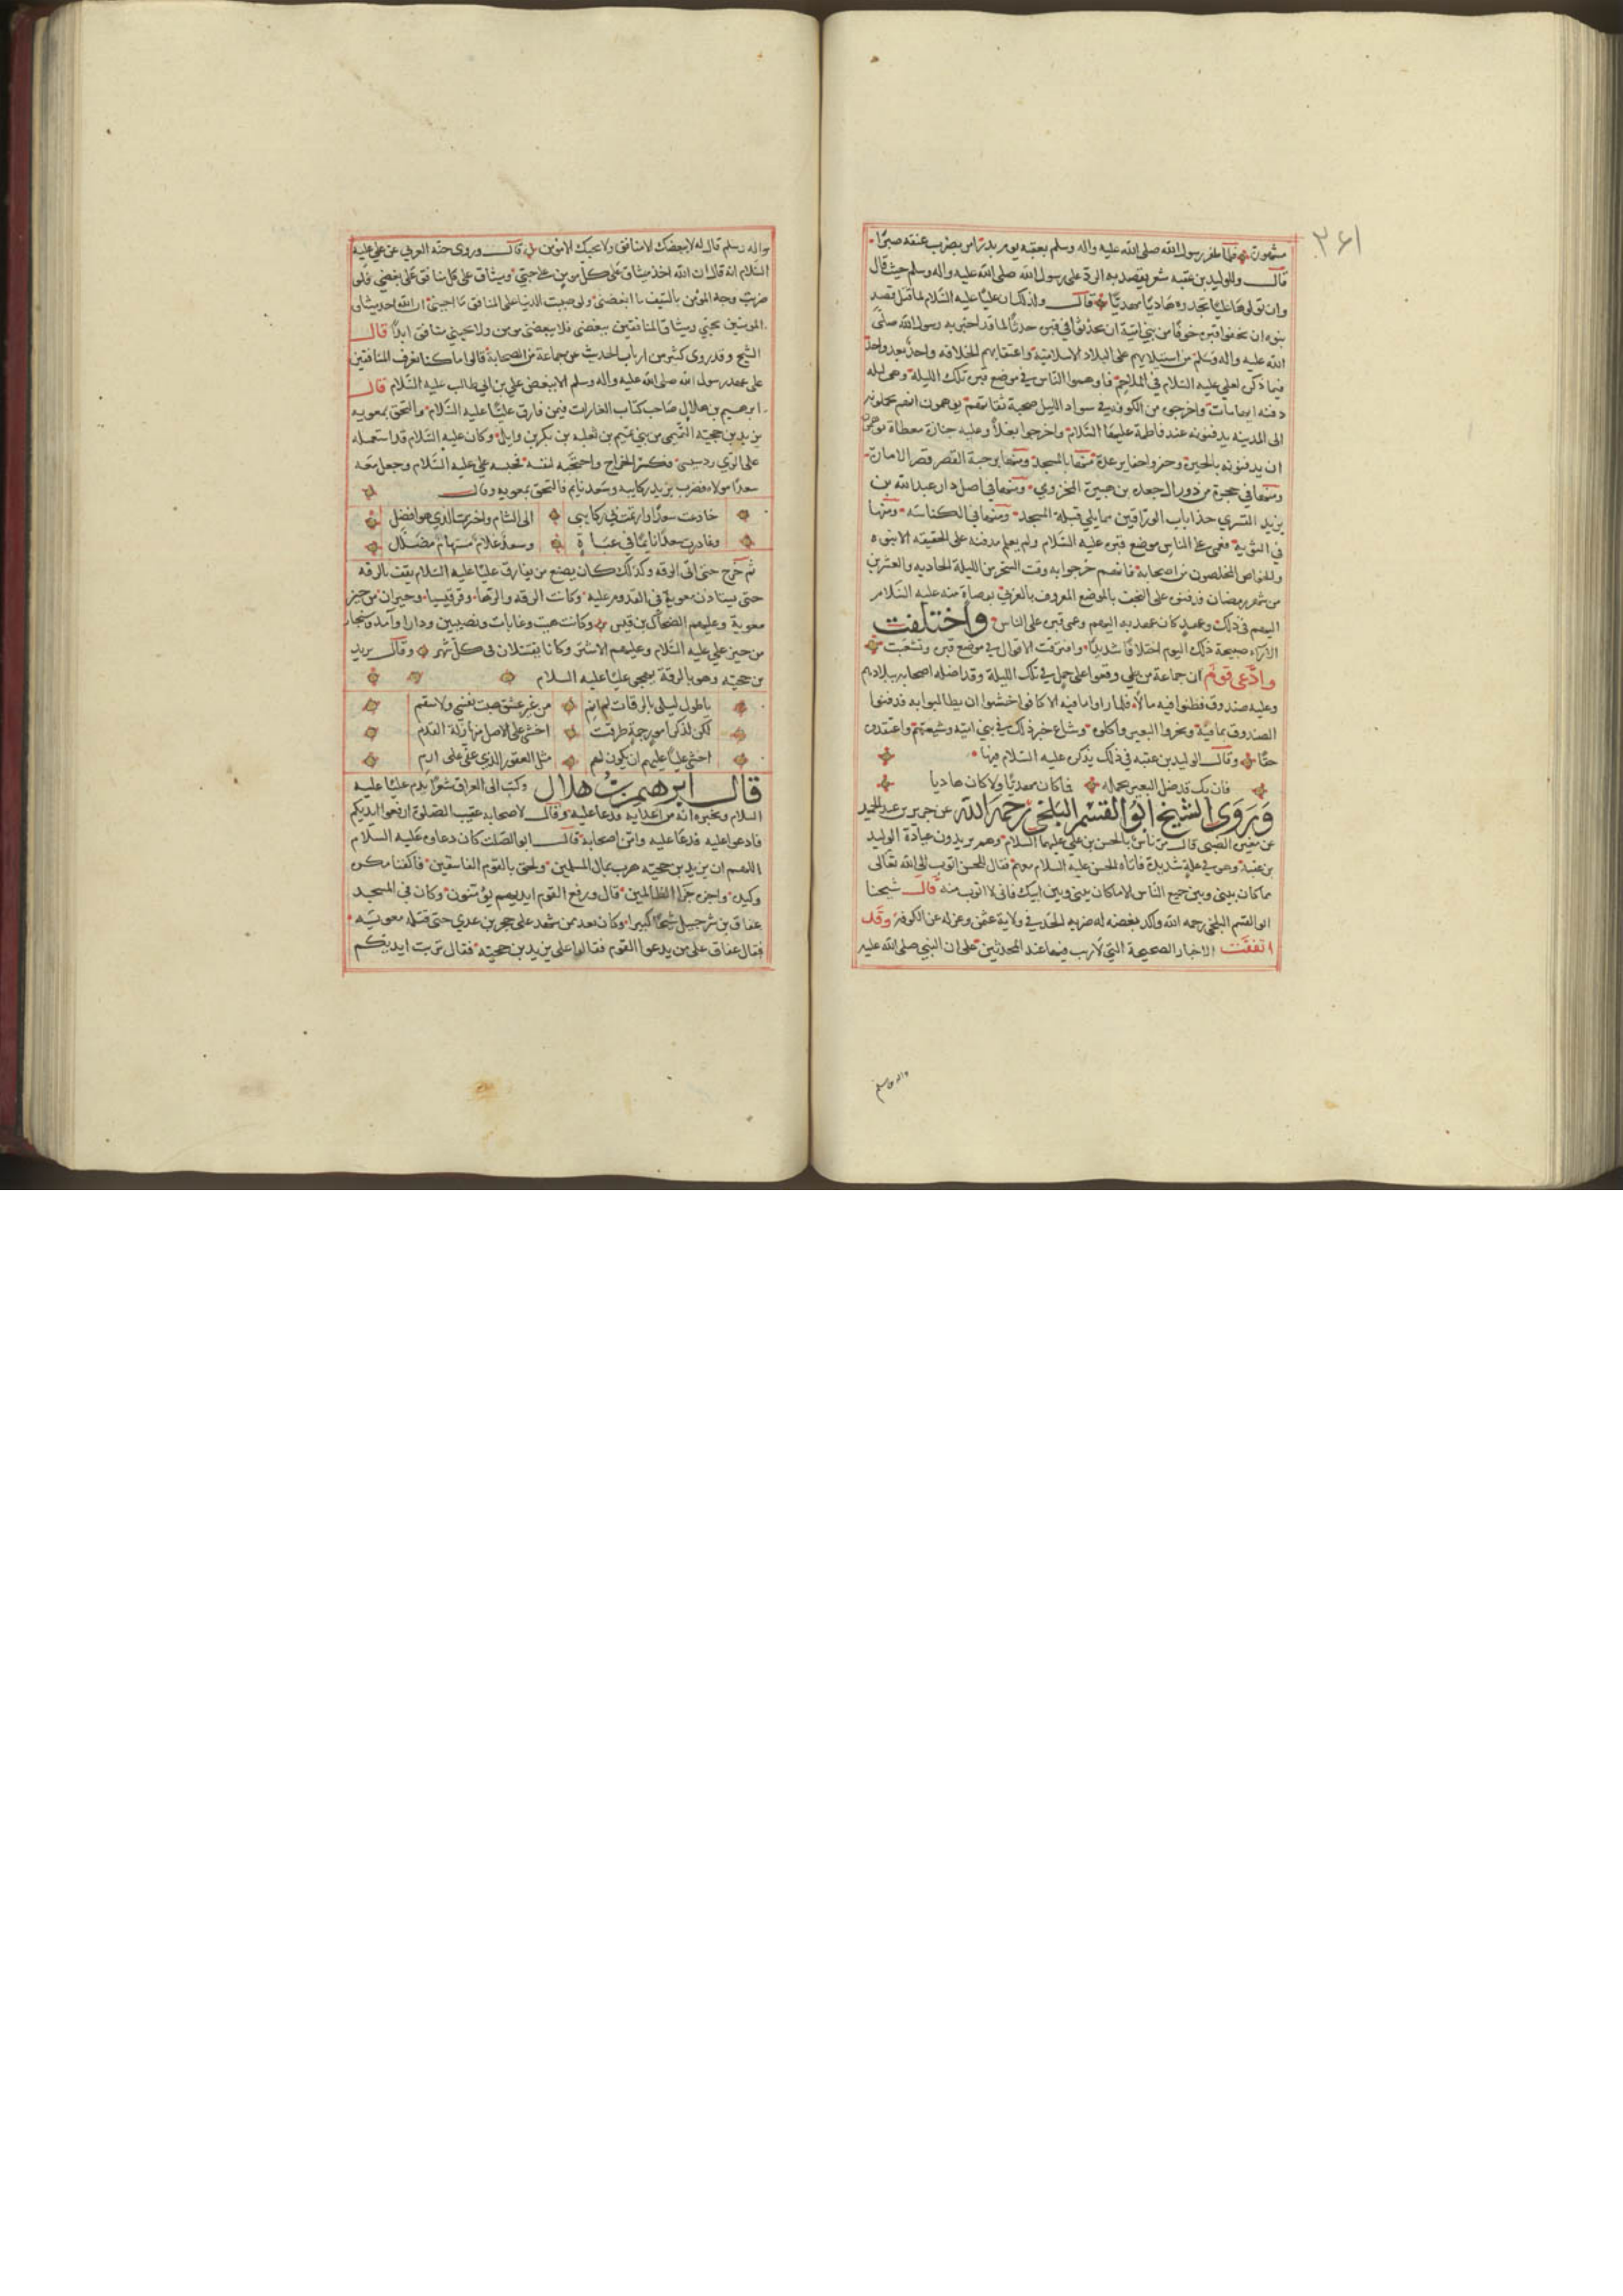 ٣٦١
مشهورة فلما ظفر رسول الله صلى الله عليه واله وسلم بعقبه يوم بدر امر بضرب عنقه صبرا
قال وللوليد بن عقبه شعر يقصد به الرد على رسول الله صلى الله عليه واله وسلم حيث قال
وان تولوها عليا تجدوه هاديا مهديا قال وذلك ان عليا عليه السلام لما قتل قصد
بنوه ان يخفوا قبره خوفا من بني امية ان يحدثوا في قبره حدثا لما قد اخبر به رسول الله صلى
الله عليه واله وسلم من استيلايهم على البلاد الاسلامية واعتقابهم الخلافه واحد بعد واحد
فيما ذكر لعلي عليه السلام في الملاحم فاوهموا الناس في موضع قبره تلك الليلة وهى ليله
دفنه ايهامات واخرجوا من الكوفه في سواد الليل صحبة ثقاتهم يوهمون انهم يحملونه
الى المدينه يدفنونه عند فاطمة عليها السلام واخرجوا بغلا وعليه جنازة مغطاة يوهمون
ان يدفنونه بالحيرة وحفروا حفاير عدة منها بالمسجد ومنها برحبة القصر قصر الامارة
ومنها في حجرة من دور ال جعدة بن هبيرة المخزومي ومنها في اصل دار عبد الله بن
يزيد القسري حذا باب الوراقين مما يلي قبلة المسجد ومنها في الكناسه ومنها
في الثوية فعمى على الناس موضع قبره عليه السلام ولم يعلم مدفنه على الحقيقه الا بنوه
والخواص المخلصون من اصحابه فانهم خرجوا به وقت السحر من الليلة الحاديه والعشرين
من شهر رمضان فدفنوه على النجف بالموضع المعروف بالغري بوصاة منه عليه السلام
اليهم في ذلك وعهد كان عهد به اليهم وعمى قبره على الناس واختلفت
الاراء صبيحة ذلك اليوم اختلافا شديدا وافترقت الاقوال في موضع قبره وتشعبت
وادعى قوم ان جماعة من طي وقعوا على جمل في تلك الليلة وقد اضله اصحابه ببلادهم
وعليه صندوق فظنوا فيه مالا فلما راوا ما فيه الاكا فوا خشوا ان يطالبوا به فدفنوا
الصندوق بما فيه ونحروا البعير واكلوه وشاع خبر ذلك في بني امية وشيعتهم واعتقدوه
حقا وقال الوليد بن عقبه في ذلك يذكره عليه السلام فيها
فان يك قد ضل البعير بحمله فما كان مهديا ولا كان هاديا
وروى الشيخ ابو القسم البلخي رحمه الله عن جرير بن عبد الحميد
عن مغيرة الضبي قال مر ناس بالحسن بن علي عليهما السلام وهم يريدون عيادة الوليد
بن عقبة وهو في علة شديدة فاتاه الحسن عليه السلام معهم فقال للحسن اتوب الى الله تعالى
مما كان بيني وبين جميع الناس الا ما كان بيني وبين ابيك فاني لا اتوب منه قال شيخنا
ابو القسم البلخي رحمه الله واكد بغضه له ضربه الحد في ولاية عثمن وعزله عن الكوفة وقد
اتفقت الاخبار الصحيحة التي لا ريب فيها عند المحدثين على ان النبي صلى الله عليه
واله وسلم
واله وسلم قال له لا يبغضك الا منافق ولا يحبك الا مؤمن قال وروى حبه العرني عن علي عليه
السلام انه قال ان الله اخذ ميثاق على كل مومن على حبي وميثاق على كل منافق على بغضي فلو
ضربت وجه المؤمن بالسيف ما ابغضني ولو صببت الدنيا على المنافق ما احبني ان الله اخذ ميثاق
المومنين بحبي وميثاق المنافقين ببغضي فلا يبغضني مومن ولا يحبني منافق ابدا قال
الشيخ وقد روى كثير من ارباب الحديث عن جماعة من الصحابة قالوا ما كنا نعرف المنافقين
على عهد رسول الله صلى الله عليه واله وسلم الا ببغض علي بن ابي طالب عليه السلام قال
ابرهيم بن هلال صاحب كتاب الغارات فيمن فارق عليا عليه السلام والتحق بمعويه
يزيد بن حجيه التيمي من بني تيم بن ثعلبه بن بكر بن وايل وكان عليه السلام قد استعمله
على الري ودستبى فكسر الخراج واحتجنه لنفسه فحبسه علي عليه السلام وجعل معه
سعدا مولاه فضرب يزيد ركايبه وسعد نايم فالتحق بمعويه وقال
خادعت سعدا وارتمت بي ركايبي الى الشام واخترت الذي هو افضل
وغادرت سعدا نايما في عباءة وسعد غلام مستهام مضلل
ثم خرج حتى اتى الرقه وكذلك كان يصنع من يفارق عليا عليه السلام يقف بالرقه
حتى يستاذن معوية في القدوم عليه وكانت الرقه والرها وقرقيسيا وحران من حيز
معوية وعليهم الضحاك بن قيس وكانت هيت وعانات ونصيبين ودارا وآمد وسنجار
من حيز علي عليه السلام وعليهم الاشتر وكانا يقتتلان في كل شهر وقال يزيد
بن حجيه وهو بالرقة يهجو عليا عليه السلام
يا طول ليلي بالرقات لم انم من غير عشق صبت نفسي ولا سقم
لكن لذكر امور جمة طرقت اخشى على الاصل منها زلة القدم
اخشى عليا عليهم ان يكون لهم مثل العقور الذي عفى على ارم
قال ابرهيم بن هلال وكتب الى العراق شعرا يذم عليا عليه
السلام ويخبره انه من اعدايه فدعا عليه وقال لاصحابه عقيب الصلوة ارفعوا ايديكم
فادعوا عليه فدعا عليه وامن اصحابه قال ابو الصلت كان دعاوه عليه السلام
اللهم ان يزيد بن حجيه هرب بمال المسلمين ولحق بالقوم الفاسقين فاكفنا مكره
وكيده واجزه جزا الظالمين قال ورفع القوم ايديهم يؤمنون وكان في المسجد
عفاق بن شرحبيل شيخا كبيرا وكان يعد ممن شهد على حجر بن عدي حتى قتله معويه
فقال عفاق على من يدعوا القوم فقالوا على يزيد بن حجيه فقال تربت ايديكم